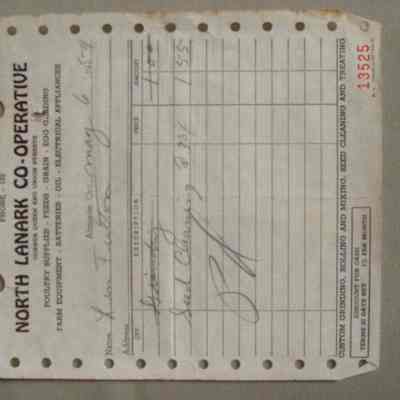 PHONE
NORTH LANARK CO-OPERATIVE
CORNER QUEEN AND UNION STREETS
POULTRY SUPPLIES - FEEDS - GRAIN - EGG GRADING
FARM EQUIPMENT - BATTERIES - OIL - ELECTRICAL APPLIANCES
Almonte Ont. May 6 1954
Name
Address
QTY DESCRIPTION PRICE AMOUNT
Grinding 1.50
Seed Cleaning 1 55
CUSTOM GRINDING, ROLLING AND MIXING, SEED CLEANING AND TREATING
DISCOUNT FOR CASH
TERMS: 30 DAYS NET PER MONTH
13525